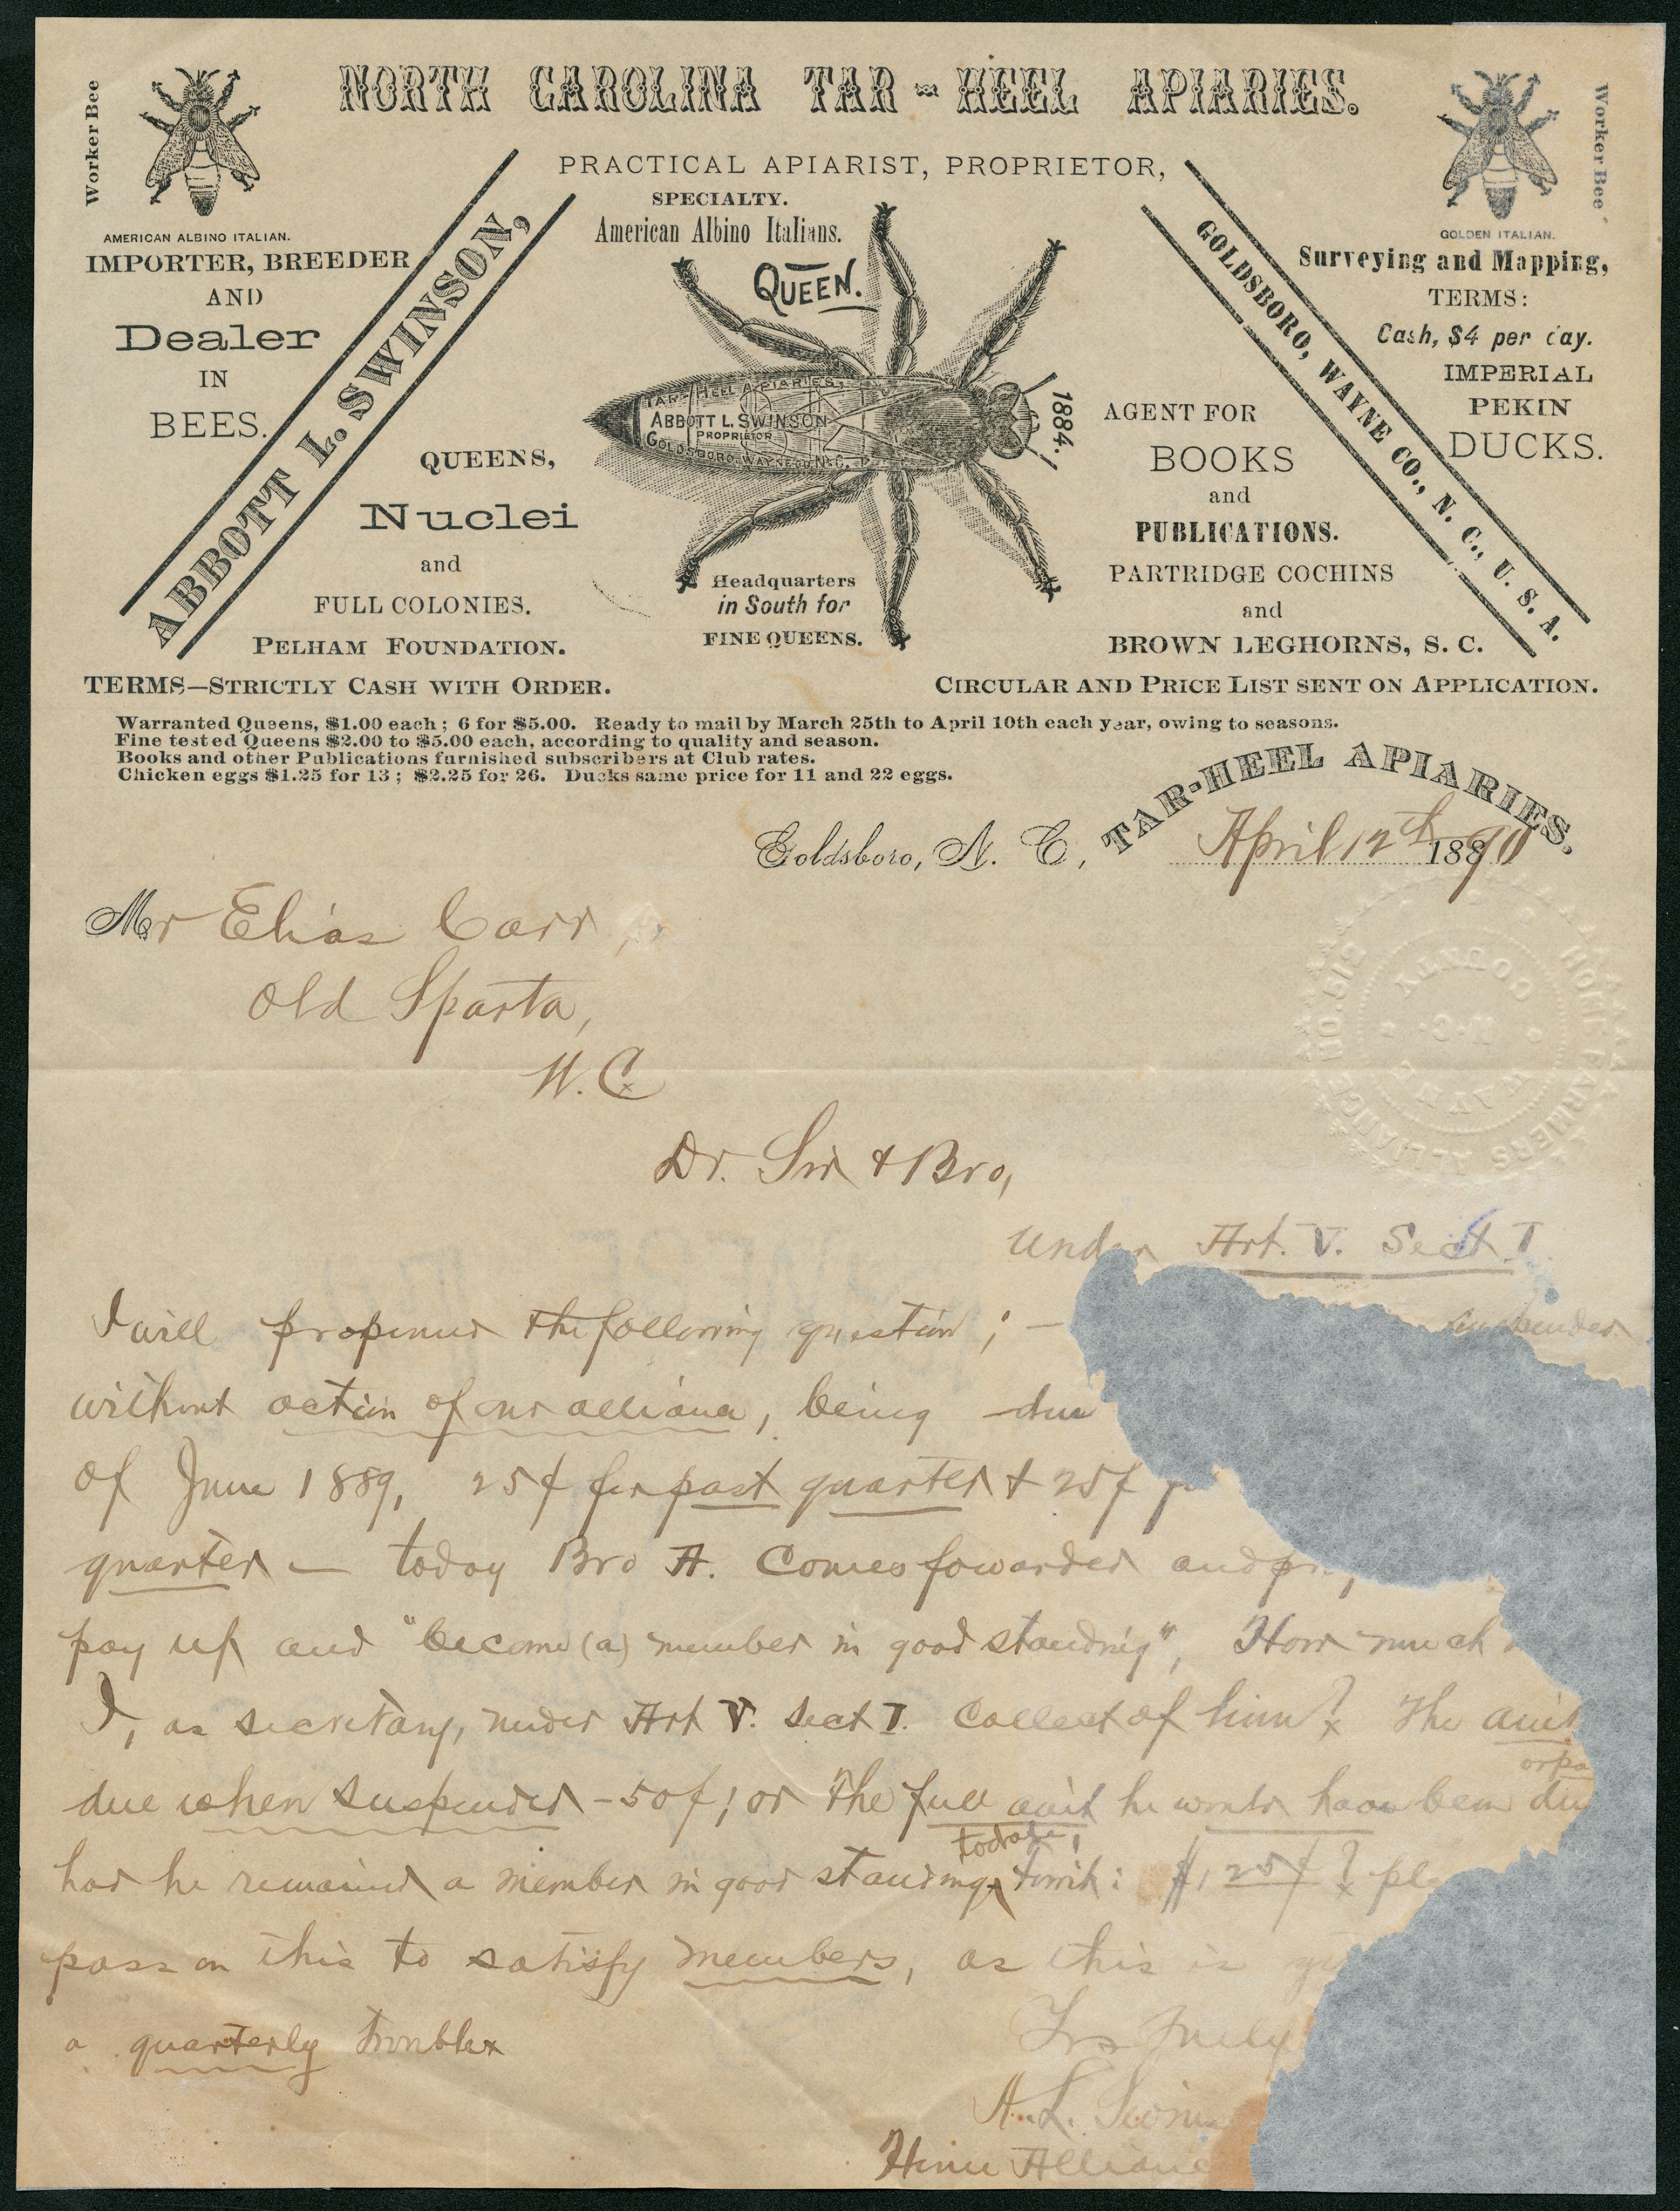 NORTH CAROLINA TAR-HEEL APIARIES.
Worker Bee
AMERICAN ALBINO ITALIAN.
IMPORTER, BREEDER
AND
Dealer
IN
BEES.
ABBOTT L. SWINSON,
PRACTICAL APIARIST, PROPRIETOR,
SPECIALTY.
American Albino Italians.
QUEEN.
TAR-HEEL APIARIES,
ABBOTT L. SWINSON
PROPRIETOR
GOLDSBORO, WAYNE CO N.C.
1884.
QUEENS,
Nuclei
and
FULL COLONIES.
PELHAM FOUNDATION.
Headquarters
in South for
FINE QUEENS.
Worker Bee
GOLDEN ITALIAN.
Surveying and Mapping,
TERMS:
Cash, $4 per day.
IMPERIAL
PEKIN
DUCKS.
GOLDSBORO, WAYNE CO., N. C., U. S. A.
AGENT FOR
BOOKS
and
PUBLICATIONS.
PARTRIDGE COCHINS
and
BROWN LEGHORNS, S. C.
TERMS—STRICTLY CASH WITH ORDER.
CIRCULAR AND PRICE LIST SENT ON APPLICATION.
Warranted Queens, $1.00 each; 6 for $5.00. Ready to mail by March 25th to April 10th each year, owing to seasons.
Fine tested Queens $2.00 to $5.00 each, according to quality and season.
Books and other Publications furnished subscribers at Club rates.
Chicken eggs $1.25 for 13; $2.25 for 26. Ducks same price for 11 and 22 eggs.
TAR-HEEL APIARIES.
Goldsboro, N. C., April 12th 1890
Mr Elias Carr
Old Sparta,
N. C.
FARMERS ALLIANCE
COUNTY
N.C.
Dr. Sir & Bro,
Under Art. V. Sect I
I will propound the following question; —
without action of our alliance, being due
of June 1889, 25¢ for past quarter & 25¢
quarter — today Bro A. Comes fowarded and
pay up and "become (a) member in good standing", How much
I, as secretary, under Art V. Sect I. Collect of him? The amt
due when suspended - 50¢; or the full amt he would have been du
had he remained a member in good standing todate, towit: $1.25¢? pl
pass on this to satisfy members, as this is
a quarterly trouble
Yrs Truly
A. L. Swins
Home Alliance